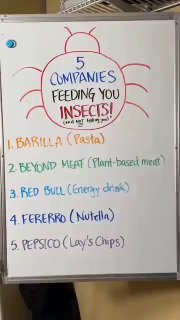 5
COMPANIES
FEEDING YOU
INSECTS!
(and NOT telling you!)
1. BARILLA (Pasta)
2. BEYOND MEAT (Plant-based meat)
3. RED BULL (Energy drink)
4. FERERRO (Nutella)
5. PEPSICO (Lay's Chips)